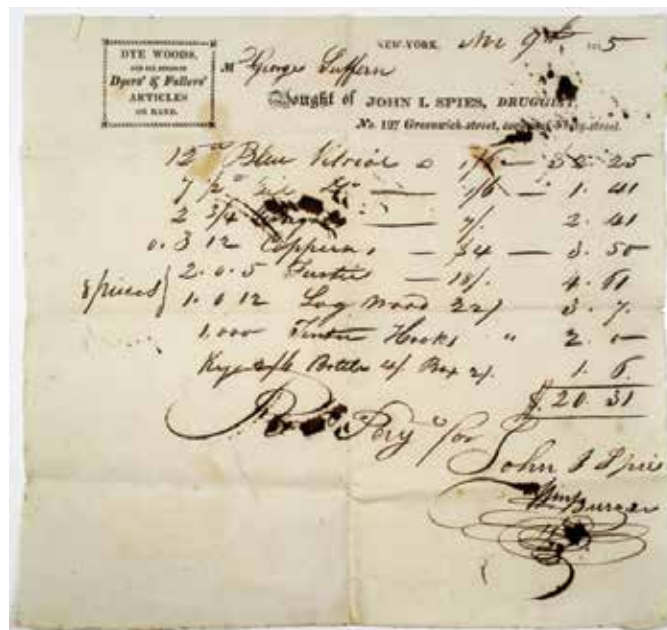 DYE WOODS,
AND ALL KINDS OF
Dyers' & Fullers'
ARTICLES
ON HAND.
NEW-YORK, 9th 5
Mr George Suffern
Bought of JOHN I. SPIES, DRUGGIST,
No. 127 Greenwich-street,
12 Blue Vitriol 1/6 — $2. 25
7 1/2 — 1/6 — 1. 41
2 3/4 — 7/. 2. 41
0. 3 12 Copperas — $4 — 3. 50
2. 0. 5 Fustic — 18/. 4. 61
8 pieces } 1. 0 12 Log Wood 22/ 3. 7.
1.000 Tenter Hooks " 2. 0
Bottle 4/. Box 2/. 1. 6.
$ 20. 31
Pay for
John I Spies
Wm Burger